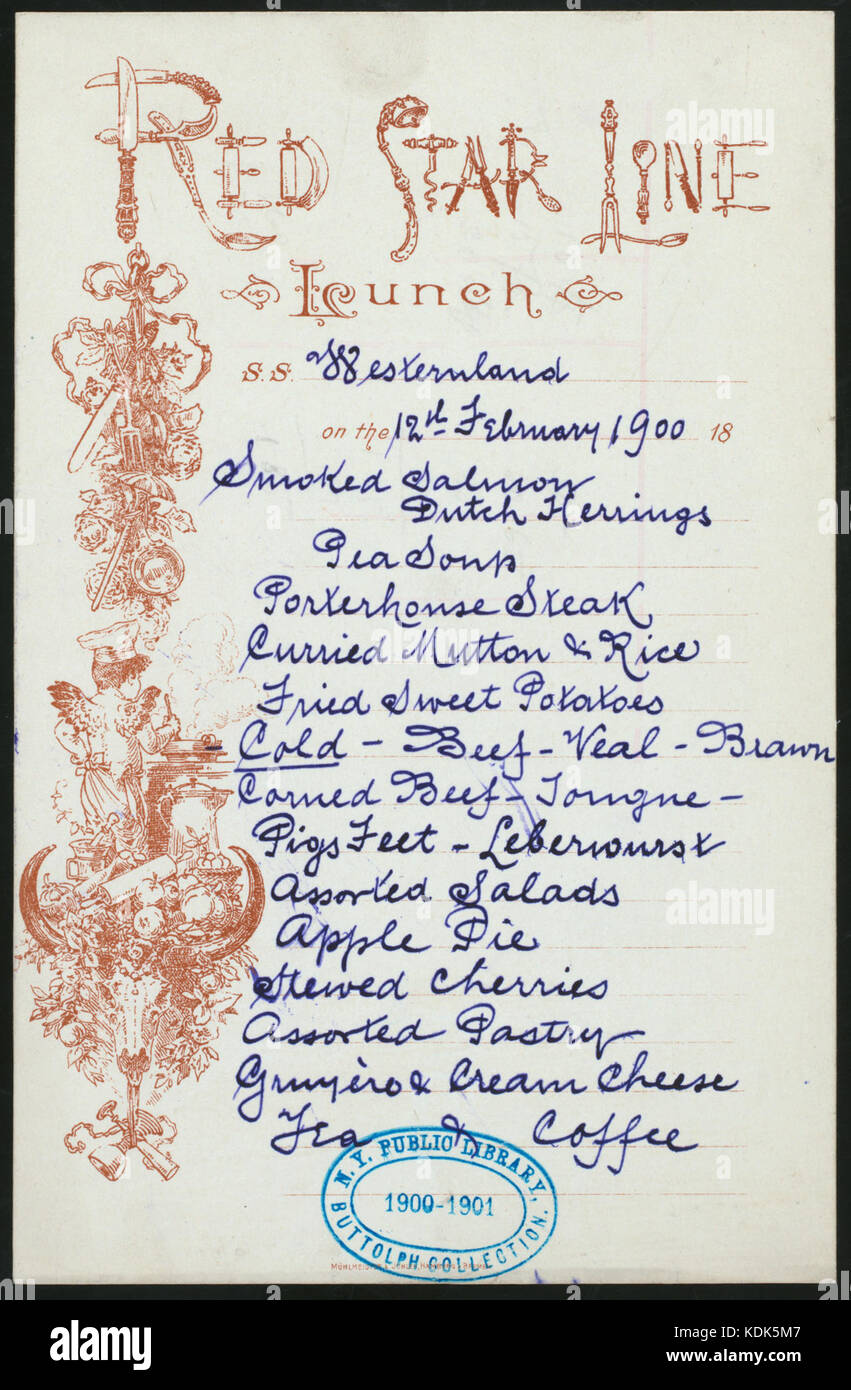 RED STAR LINE
Lunch
S.S. Westernland
on the 12th February 1900 18
Smoked Salmon
Dutch Herrings
Pea Soup
Porterhouse Steak
Curried Mutton & Rice
Fried Sweet Potatoes
- Cold - Beef - Veal - Brawn
Corned Beef - Tongue -
Pigs Feet - Leberwurst
Assorted Salads
Apple Pie
Stewed Cherries
Assorted Pastry
Gruyèro & Cream Cheese
Tea & Coffee
N.Y. PUBLIC LIBRARY,
1900-1901
BUTTOLPH COLLECTION.
alamy
Image ID: KDK5M7
www.alamy.com